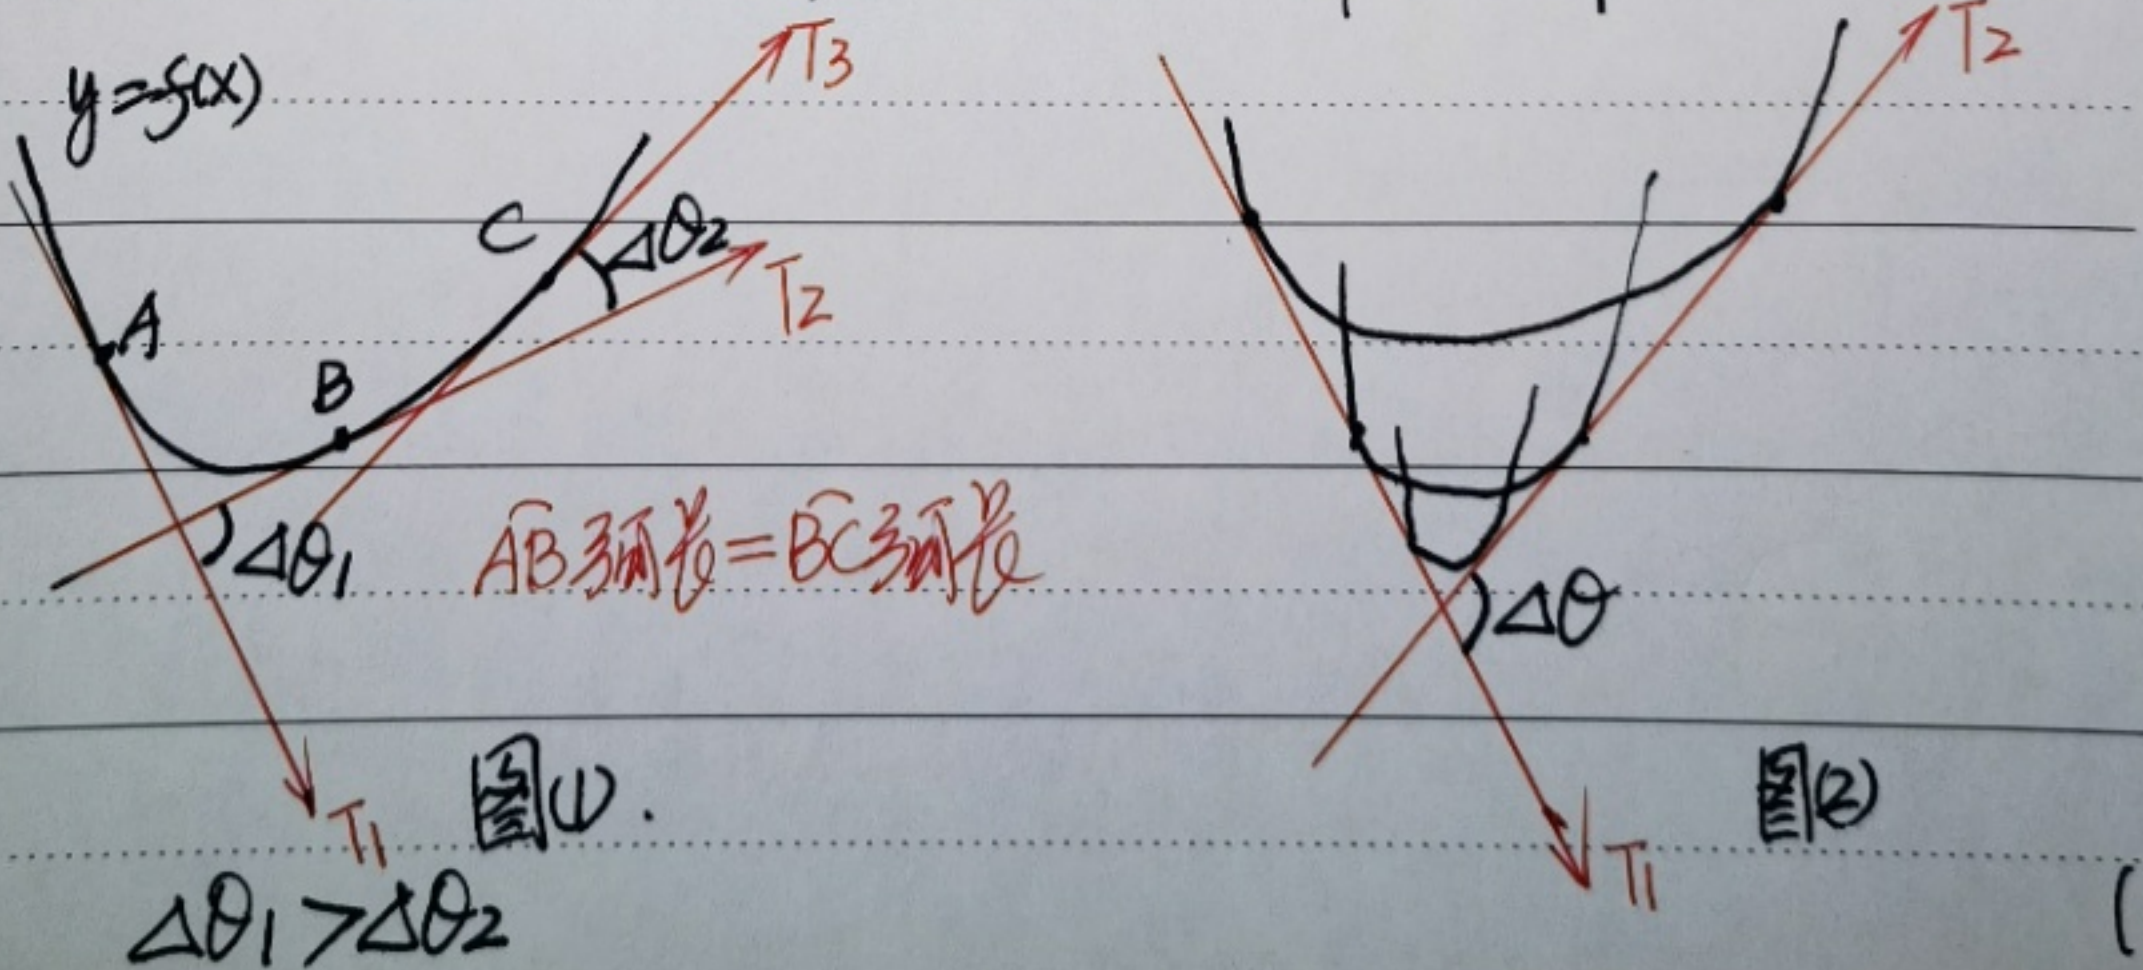 y=f(x)
T3
C
Δθ2
T2
A
B
Δθ1
AB弧长=BC弧长
T1
图(1).
Δθ1>Δθ2
T2
Δθ
T1
图(2)
(